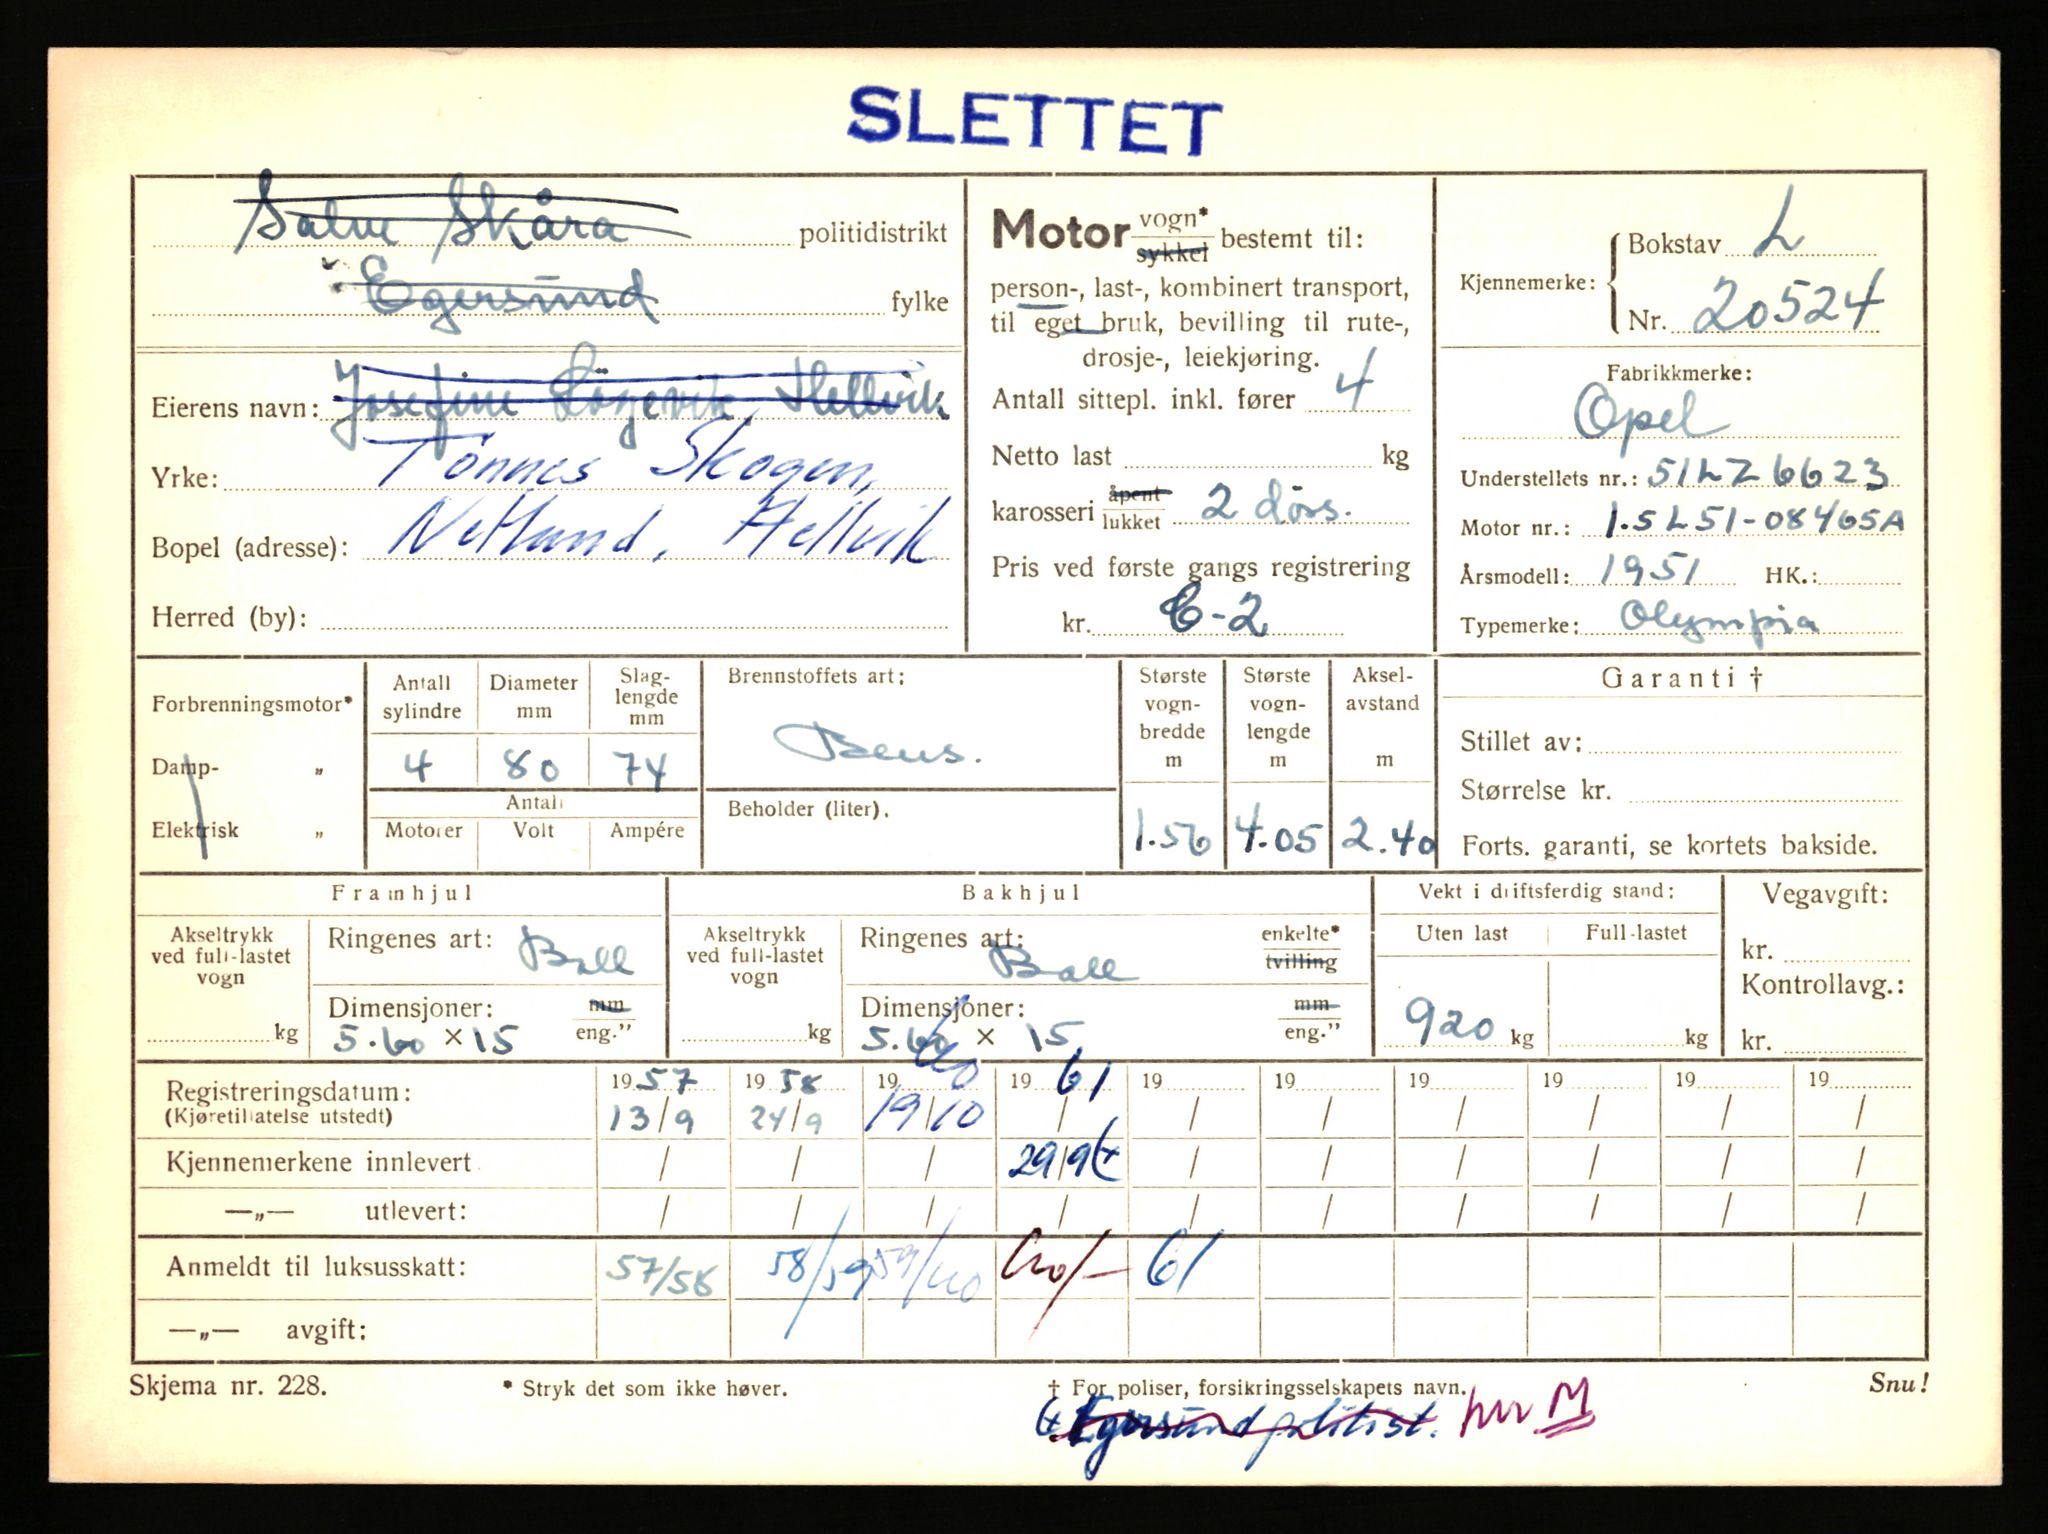 SLETTET
Salve Skåra politidistrikt
Egersund fylke
Eierens navn: Josefine Hellvik
Yrke: Tönnes Skogen,
Bopel (adresse): Netland, Hellvik
Herred (by):
Motor vogn* sykkel bestemt til:
person-, last-, kombinert transport,
til eget bruk, bevilling til rute-,
drosje-, leiekjøring.
Antall sittepl. inkl. fører 4
Netto last kg
karosseri åpent lukket 2 dørs.
Pris ved første gangs registrering
kr. C-2
Kjennemerke: Bokstav L
Nr. 20524
Fabrikkmerke:
Opel
Understellets nr.: 51LZ6623
Motor nr.: 1.5L51-08465A
Årsmodell: 1951 HK.:
Typemerke: Olympia
Forbrenningsmotor*
Damp- „
Elektrisk „
Antall sylindre Diameter mm Slag-lengde mm
4 80 74
Antall
Motorer Volt Ampére
Brennstoffets art:
Bens.
Beholder (liter).
Største vogn-bredde m Største vogn-lengde m Aksel-avstand m
1.56 4.05 2.40
Garanti †
Stillet av:
Størrelse kr.
Forts. garanti, se kortets bakside.
Framhjul
Akseltrykk ved full-lastet vogn
kg
Ringenes art: Ball
Dimensjoner: mm
5.60 × 15 eng.”
Bakhjul
Akseltrykk ved full-lastet vogn
kg
Ringenes art: Ball enkelte* tvilling
Dimensjoner: mm
5.60 × 15 eng.”
Vekt i driftsferdig stand:
Uten last Full-lastet
920 kg kg
Vegavgift:
kr.
Kontrollavg.:
kr.
Registreringsdatum: 1957 1958 1960 1961 19 19 19 19 19 19
(Kjøretillatelse utstedt) 13/9 24/9 19/10 / / / / / / /
Kjennemerkene innlevert / / / 29/9 / / / / / /
—„— utlevert: / / / / / / / / / /
Anmeldt til luksusskatt: 57/58 58/59 59/60 60/- 61
—„— avgift:
Skjema nr. 228. * Stryk det som ikke høver. † For poliser, forsikringsselskapets navn. Snu!
Egersund politist. M